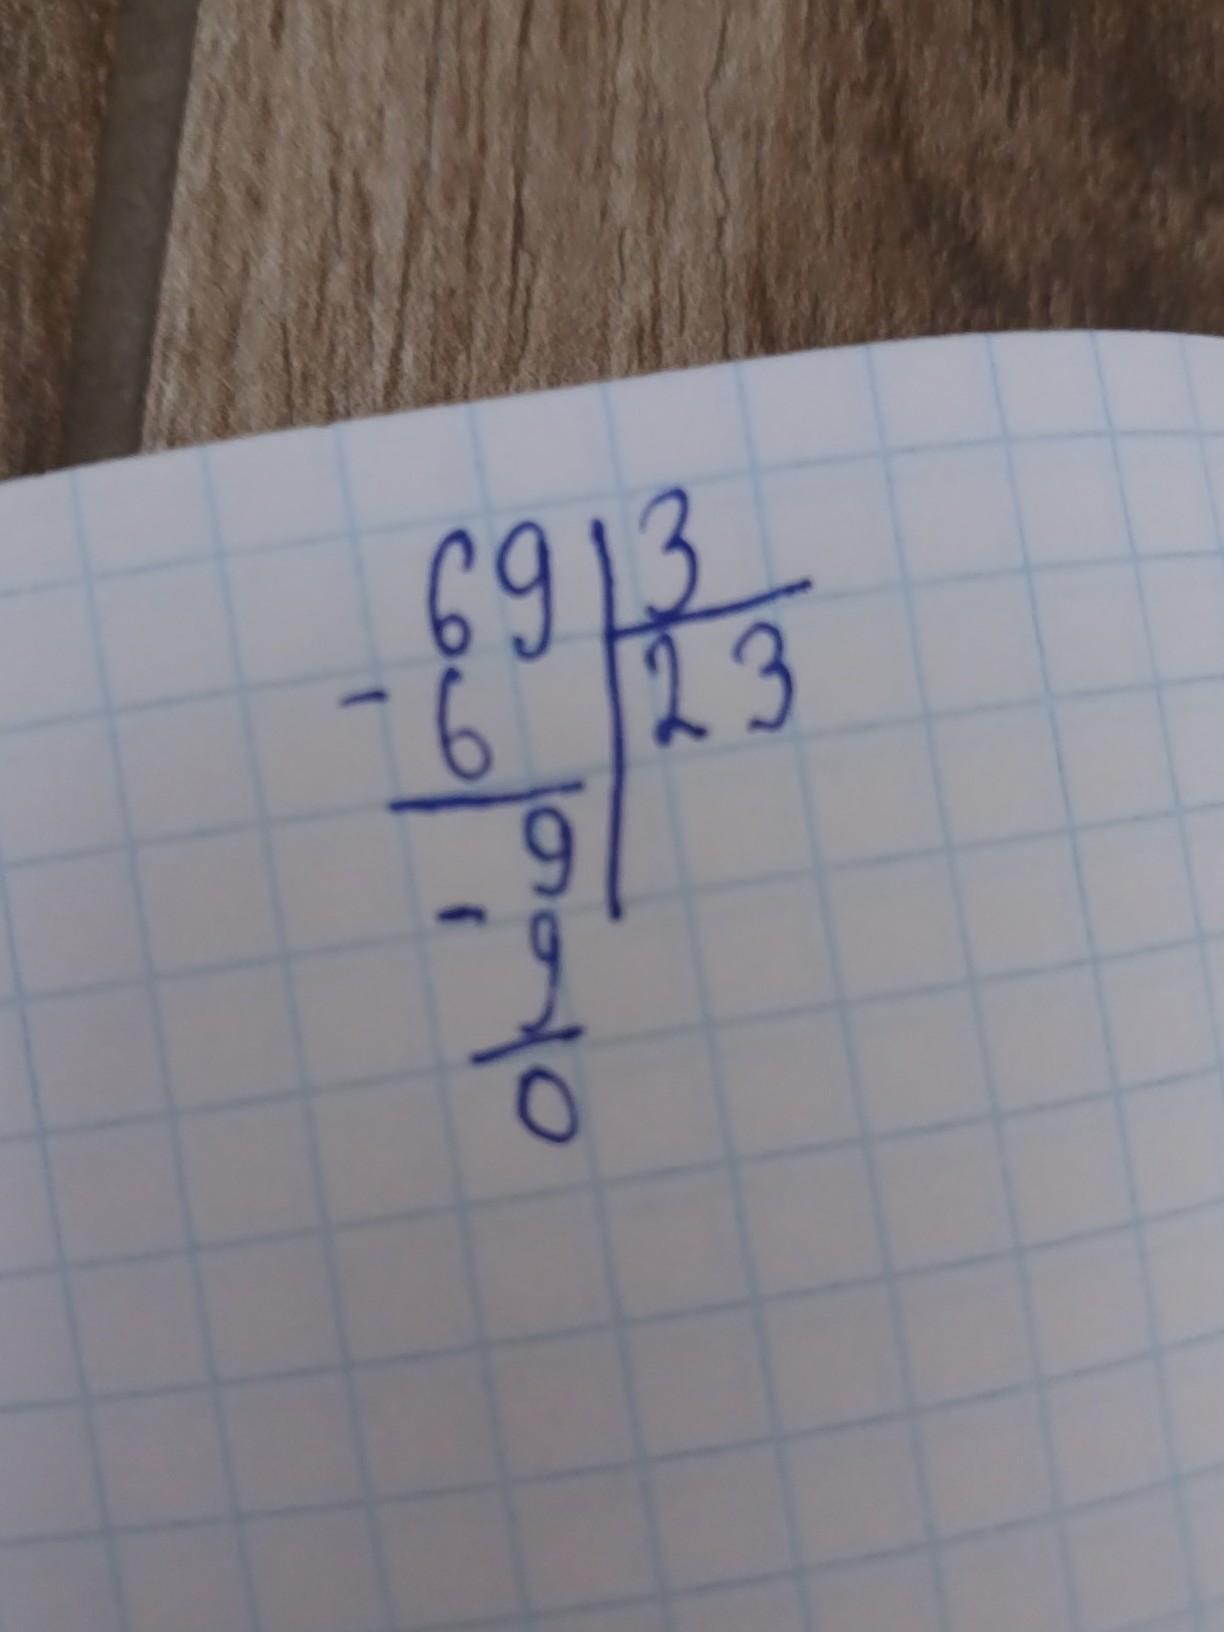 69 3
- 6 23
9
- 9
0